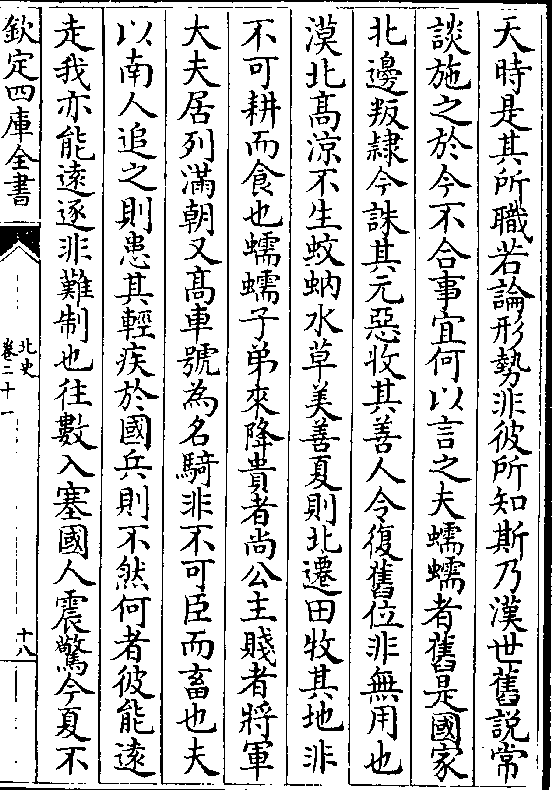 天時是其所職若論形勢非彼所知斯乃漢世舊說常
談施之於今不合事宜何以言之夫蠕蠕者舊是國家
北邊叛隸今誅其元惡收其善人令復舊位非無用也
漠北髙涼不生蚊蚋水草美善夏則北遷田牧其地非
不可耕而食也蠕蠕子弟來降貴者尚公主賤者將軍
大夫居列滿朝又髙車號為名騎非不可臣而畜也夫
以南人追之則患其輕疾於國兵則不然何者彼能逺
走我亦能逺逐非難制也往數入塞國人震驚今夏不
欽定四庫全書
北史
卷二十一
十八